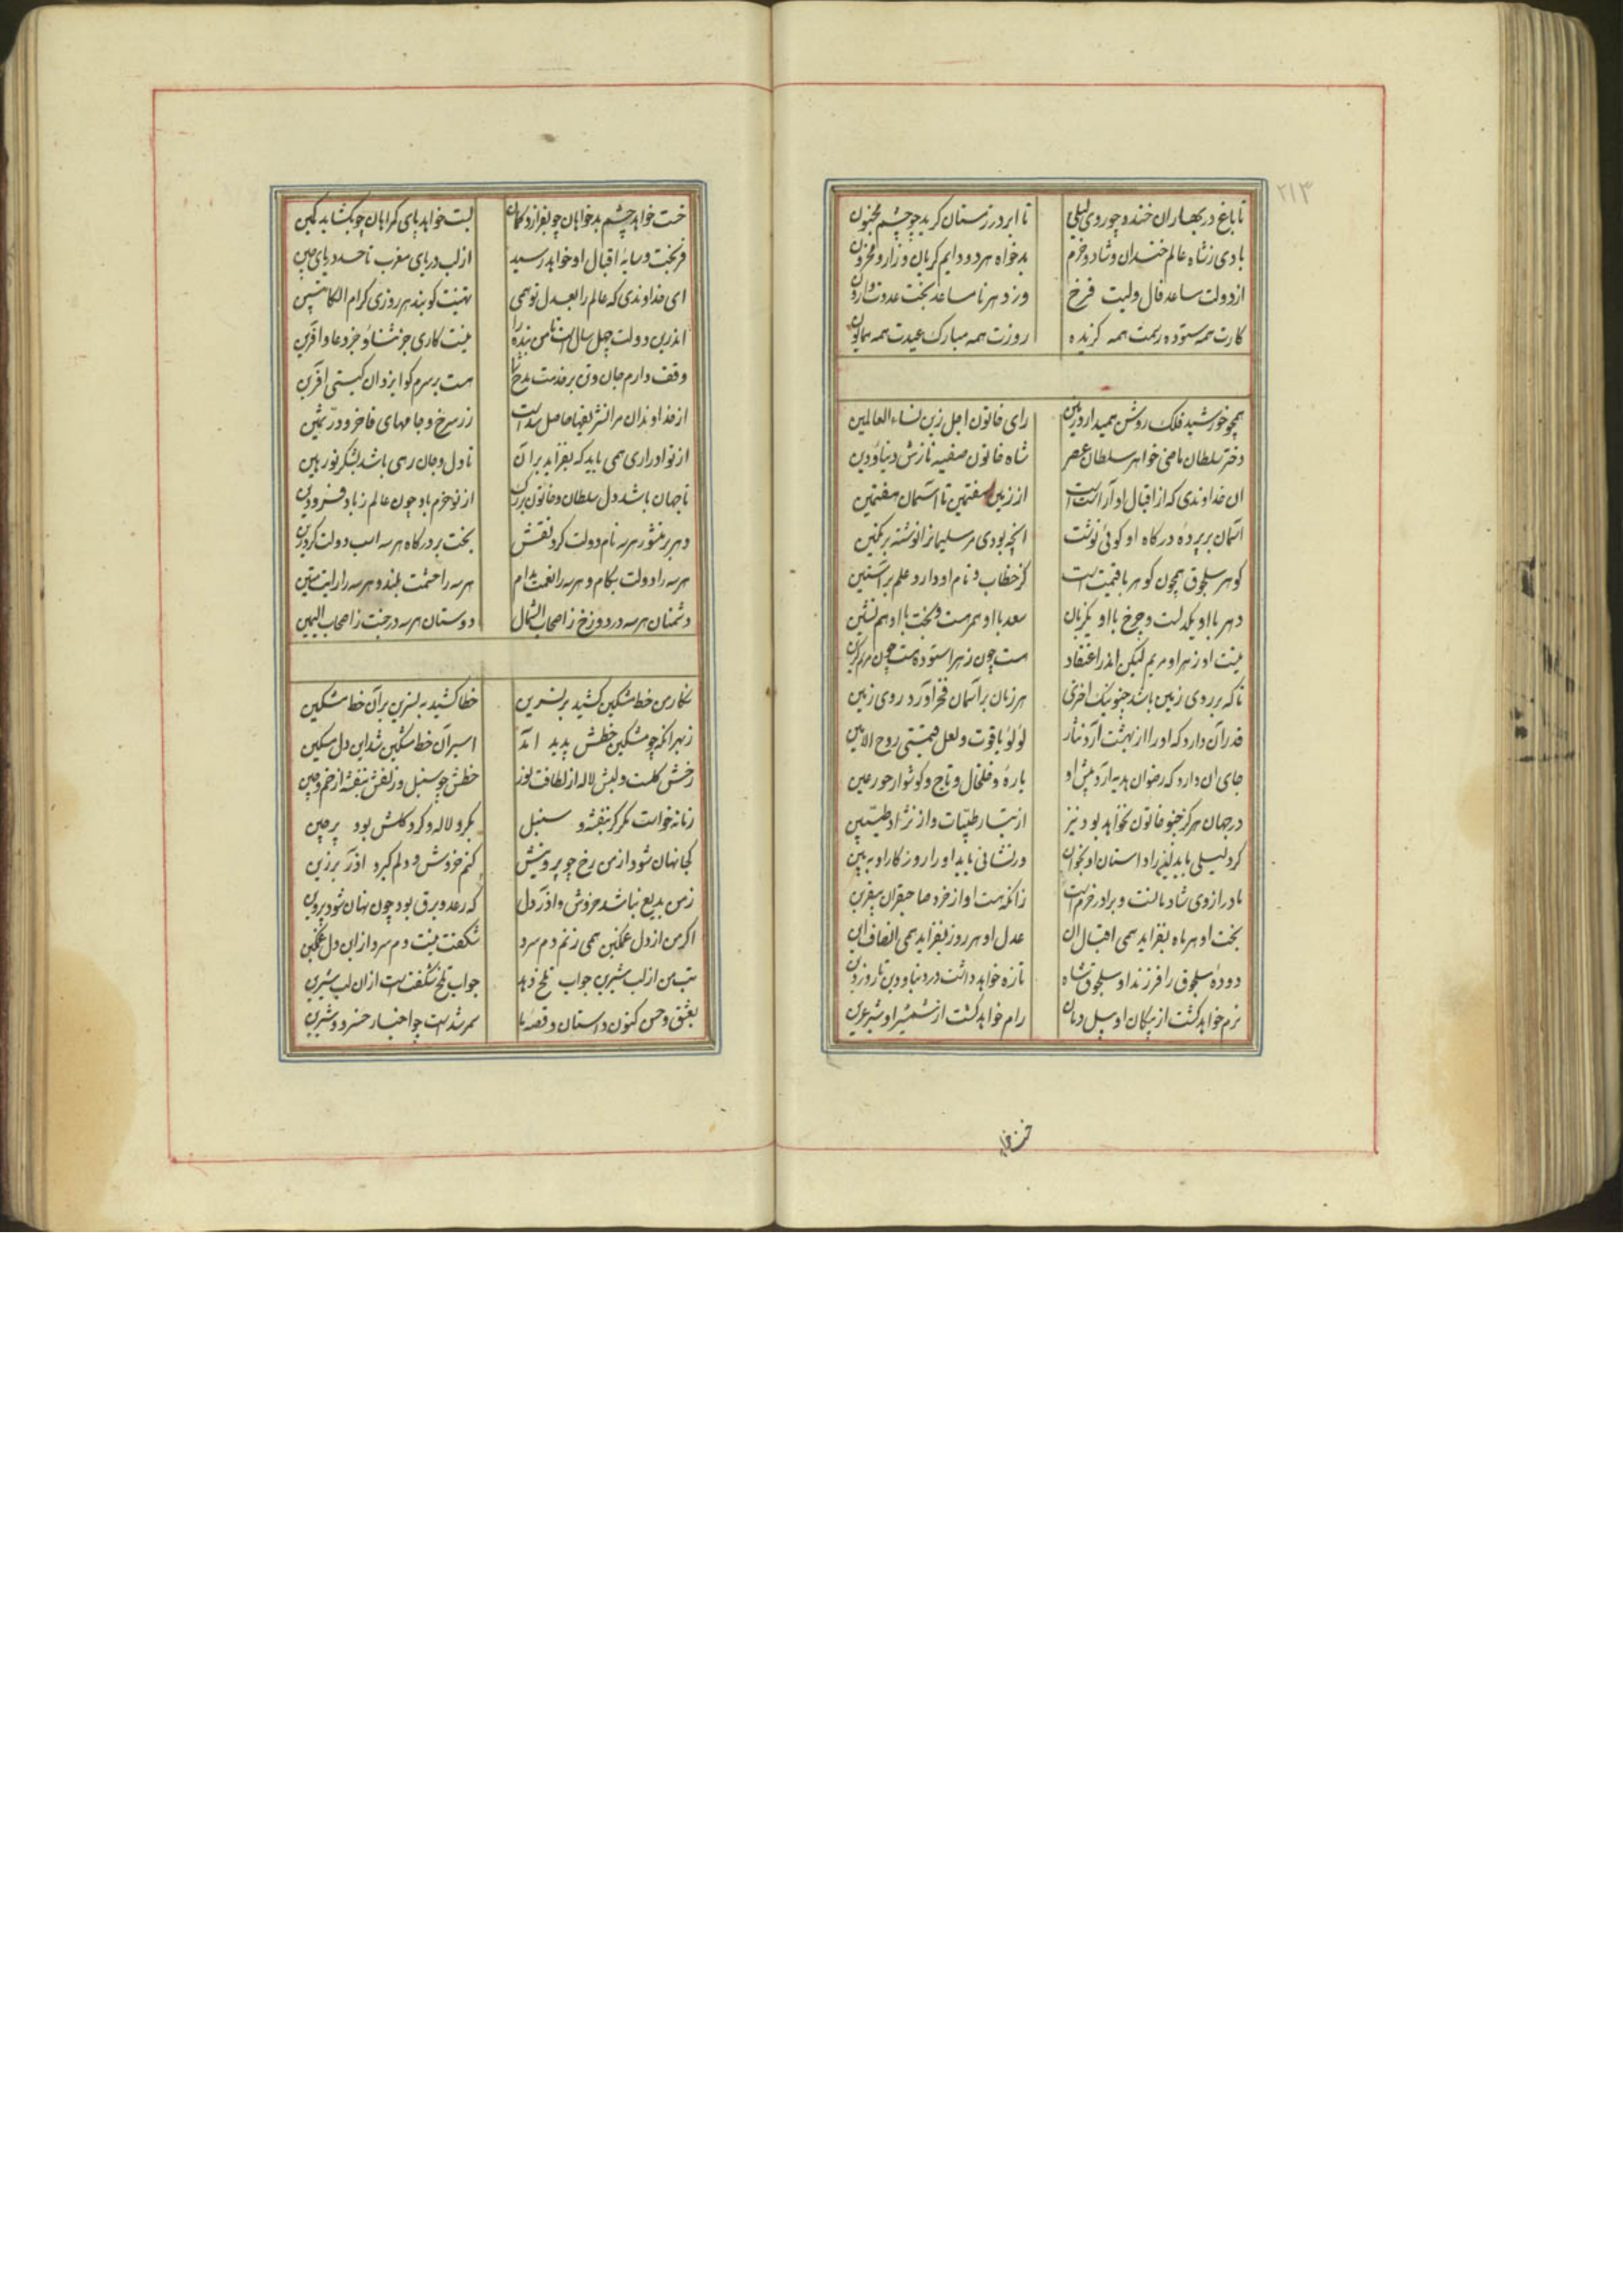 ۲۱۳
تا باغ در بهاران خندد چو روی لیلی تا ابر در زمستان کرید چو چشم مجنون
بادی ز شاه عالم خندان و شاد و خرم بدخواه هر دو دایم کریان و زار و محزون
از دولت مساعد فال ولیت فرخ وز دهر نامساعد بخت عدوت وارون
کارت همه ستوده رسمت همه کزیده روزت همه مبارک عیدت همه همایون
همچو خورشید فلک روشن همیدارد زمین رای خاتون اجل زین نساء العالمین
دختر سلطان ماضی خواهر سلطان عصر شاه خاتون صفیه نازش دنیا و دین
ان خداوندی که از اقبال او آراسته است از زمین هفتمین تا آسمان هفتمین
آسمان بر پرده درکاه او کوئی نوشت انچه بودی مر سلیمانرا نوشته بر نکین
کوهر سلجوق همچون کوهر با قیمت است کز خطاب و نام او دارد علم بر آستین
دهر با او یکدلست و چرخ با او یکزبان سعد با او همرهست و بخت با او هم نشین
نیست او زهرا و مریم لیکن اندر اعتقاد هست چون زهرا ستوده هست چون مریم کزین
تا که بر روی زمین باشد چنو نیک اختری هر زمان بر آسمان فخر آورد روی زمین
قدر آن دارد که او را از بهشت آرد نثار لؤلؤ یاقوت و لعل قیمتی روح الامین
جای ان دارد که رضوان هدیه آرد پیش او یاره و خلخال و تاج و کوشوار حور عین
در جهان هرکز چنو خاتون نخواهد بود نیز از تبار طیبات و از نژاد طیبین
کر دلیلی باید بفضل او داستان او بخوان ور نشانی باید او را روزکار او ببین
مادر از وی شادمانست و برادر خرم است زانکه هست او از خرد صاحبقران بی‌قرین
بخت او هر ماه بفزاید همی اقبال ان عدل او هر روز بفزاید همی انصاف این
دوده سلجوق را فرزند او سلجوقشاه تازه خواهد داشت در دنیا و دین تا روز دین
نرم خواهد کشت از پیکان او پیل دمان رام خواهد کشت از شمشیر او شیر عرین
خست خواهد
خست خواهد چشم بدخواهان چو بفرازد کمان بست خواهد پای کمراهان چو بکشاید کمین
فر بخت و سایه اقبال او خواهد رسید از لب دریای مغرب تا حد دریای چین
ای خداوندی که عالم را بعدل تو همی تهنیت کویند هر روزی کرام الکاتبین
اندرین دولت چهل سال است تا من بنده را نیست کاری جز ثنا و جز دعا و آفرین
وقف دارم جان و تن بر خدمت و مدح شما هست بر سرم کوا یزدان کیتی آفرین
از خداوندان مرا تشریفها حاصل شده است زر سرخ و جامهای فاخر و در ثمین
از تو ادراری همی باید که بفزاید بر آن تا دل و جان رهی باشد بشکر تو رهین
تا جهان باشد دل سلطان و خاتون بزرک از تو خرم باد چون عالم ز باد فرودین
دهر بر منشور هر سه نام دولت کرد نقش بخت بر درکاه هر سه اسب دولت کرد زین
هر سه را دولت بکام و هر سه را نعمت مدام هر سه را حشمت بلند و هر سه را رایت متین
دشمنان هر سه در دوزخ ز اصحاب الشمال دوستان هر سه در جنت ز اصحاب الیمین
نکار من خط مشکین کشید بر نسرین خطا کشید به نسرین بر آن خط مشکین
ز بهر انکه چو مشکین خطش پدید امد اسیر آن خط مشکین شد این دل مسکین
رخش کلست و لبش لاله از لطافت نور خطش چو سنبل و زلفش بنفشه از خم و چین
زمانه خواست مکر کز بنفشه و سنبل بکرد لاله و کرد کلش بود پرچین
کجا نهان شود از من رخ چو پروینش کنم خروش و دلم کیرد اذر برزین
ز من بدیع نباشد خروش و اذر دل که رعد و برق بود چون نهان شود پروین
اکر من از دل غمکین همی زنم دم سرد شکفت نیست دم سرد از ان دل غمکین
بت من از لب شیرین جواب تلخ دهد جواب تلخ شکفت است از ان لب شیرین
بعشق و حسن کنون داستان و قصه ما سمر شد است چو اخبار خسرو و شیرین